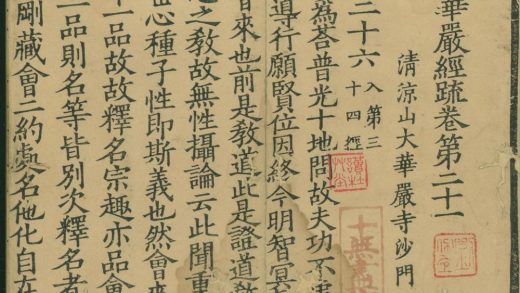 華嚴經疏卷第二十一
清涼山大華嚴寺沙門
二十六 入第三
十四經
讀杜
艸堂
十無盡
爲荅普光十地問故夫功不
導行願賢位因終今明智冥
來也前是教道此是證道教
之教故無性攝論云此聞
世心種子性即斯義也然會來
一品故故釋名宗趣亦品會
一品則名等皆別次釋名者
剛藏會二約處名他化自在